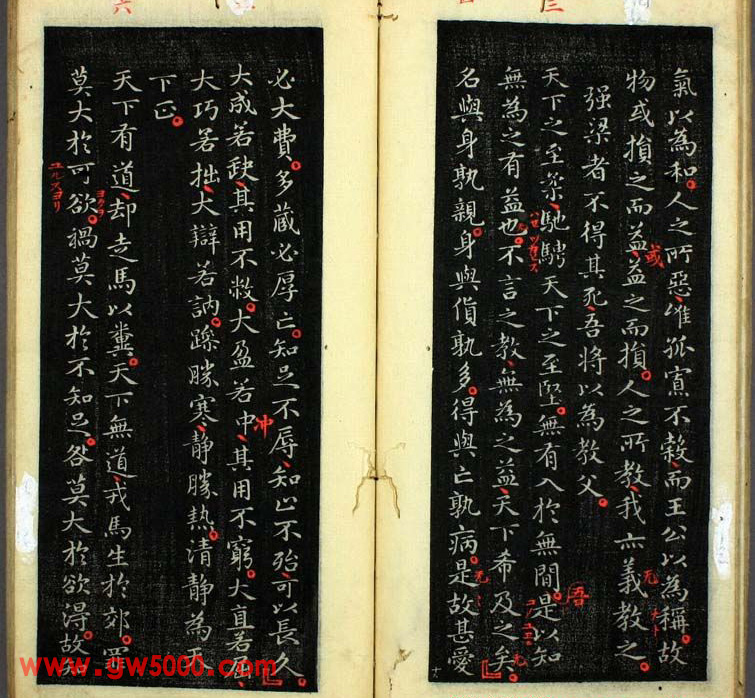 氣以為和人之所惡唯孤寡不穀而王公以為稱故
物或損之而益益之而損人之所教我亦義教之
强梁者不得其死吾將以為教父
天下之至柔馳騁天下之至堅無有入於無間是以知
無為之有益也不言之教無為之益天下希及之矣
名與身孰親身與貨孰多得與亡孰病是故甚愛
必大費多藏必厚亡知足不辱知止不殆可以長久
大成若缺其用不敝大盈若中其用不窮大直若
大巧若拙大辯若訥躁勝寒静勝熱清静為天
下正
天下有道却走馬以糞天下無道戎馬生於郊罪
莫大於可欲禍莫大於不知足咎莫大於欲得故知
或
吾
冲
三
六
www.gw5000.com